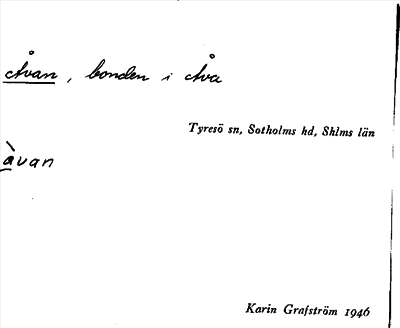 Åvan, bonden i Åva
Tyresö sn, Sotholms hd, Shlms län
àvan
Karin Grafström 1946